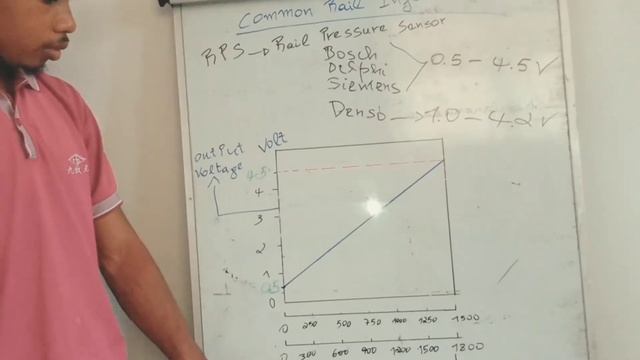 Common Rail Inj
RPS → Rail Pressure Sensor
Bosch
Delphi
Siemens
0.5 - 4.5 V
Denso → 1.0 - 4.2 V
output voltage
Volt
4.5
4
3
2
1
0.5
0
0 250 500 750 1000 1250 1500
0 300 600 900 1200 1500 1800